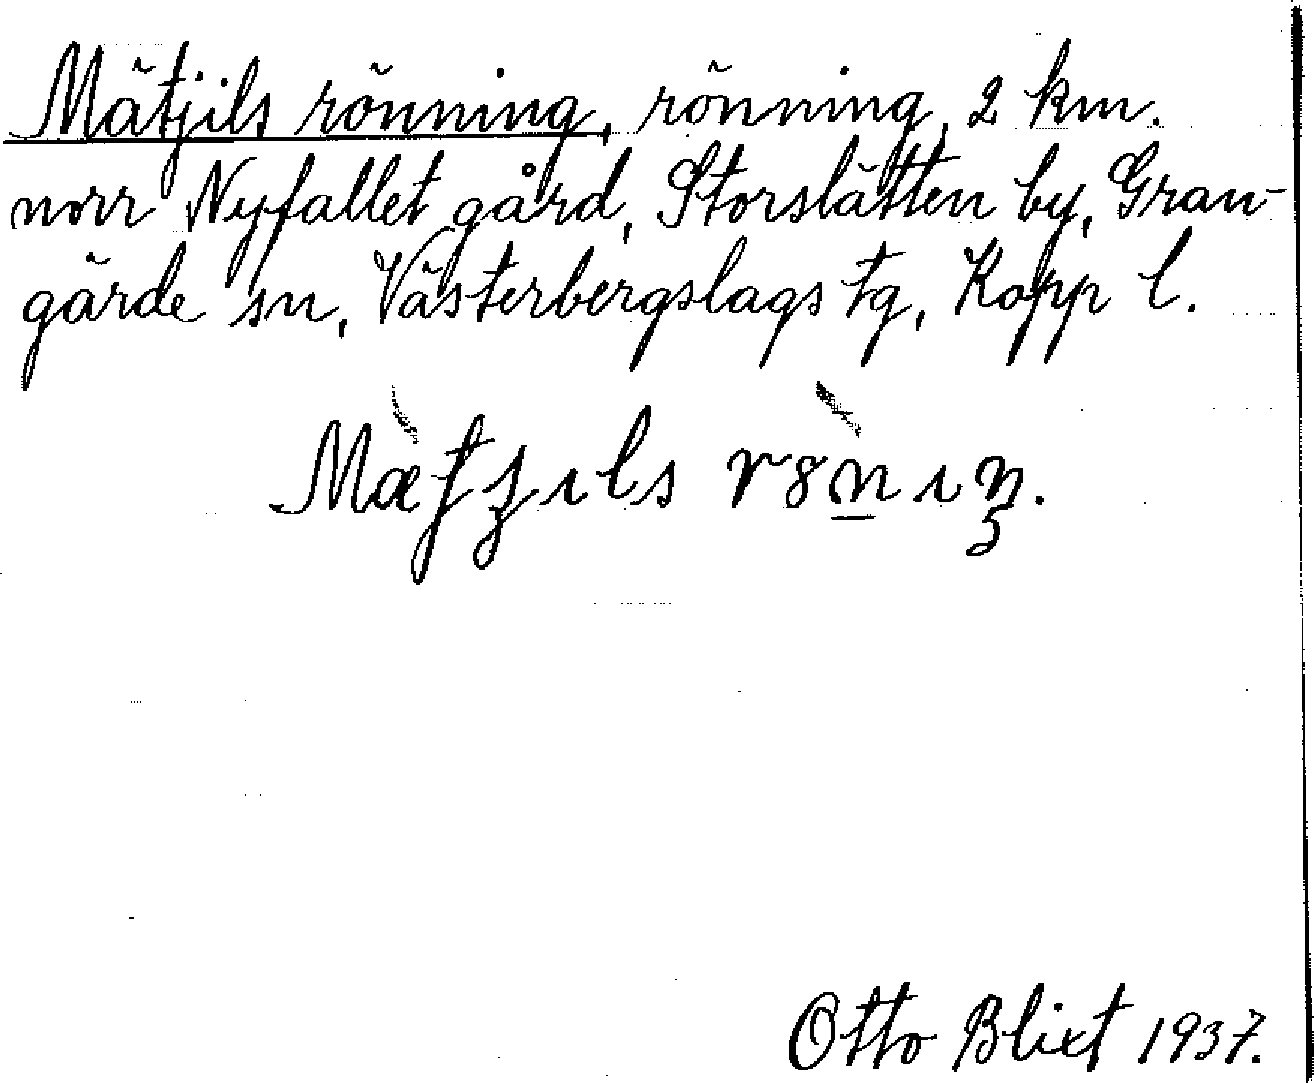 Mätjils rönning, rönning, 2 km.
norr Nyfallet gård, Storslätten by, Gran-
gärde sn, Västerbergslags tg, Kopp l.
Otto Blixt 1937.